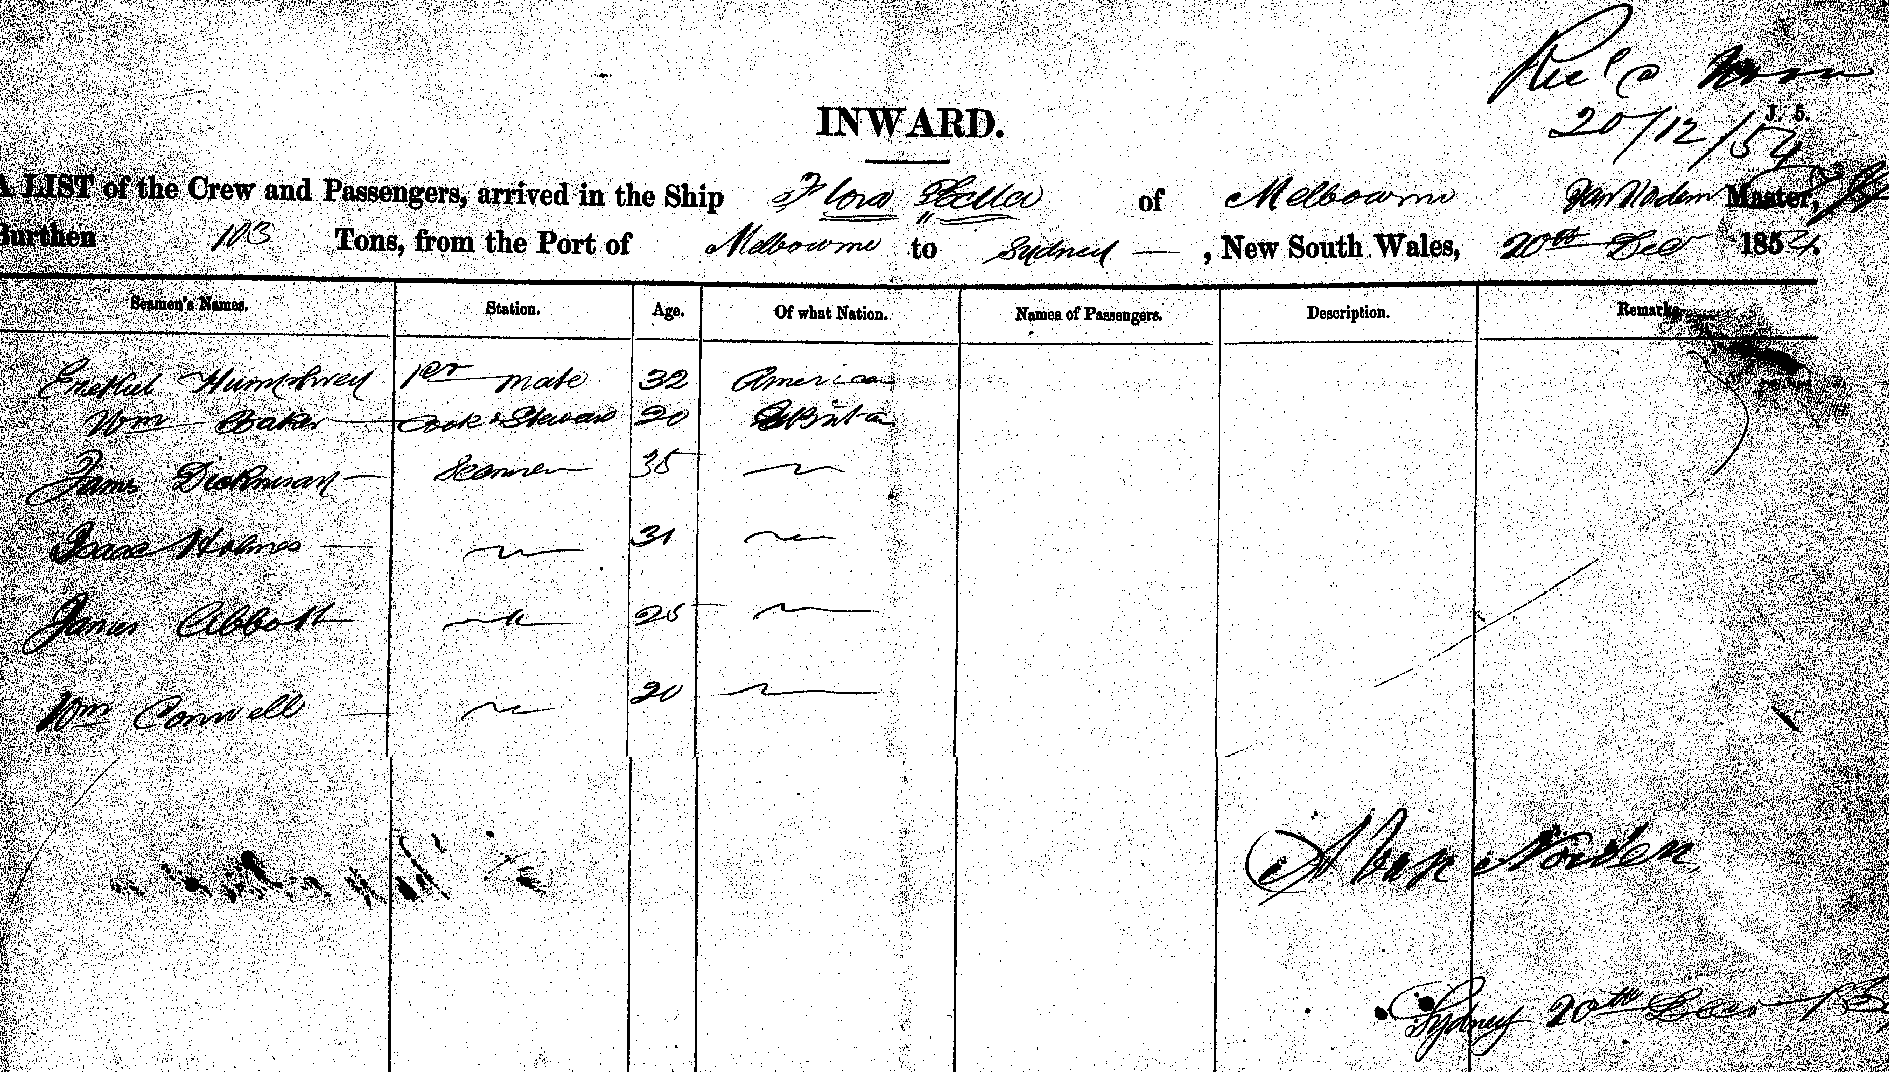 Rec'd Noon
J. 5.
20/12/54
INWARD.
A LIST of the Crew and Passengers, arrived in the Ship Flora Bella of Melbourne Van Norden Master,
Burthen 103 Tons, from the Port of Melbourne to Sydney —, New South Wales, 20th Dec 1854.
Seamen's Names. Station. Age. Of what Nation. Names of Passengers. Description. Remarks.
Humphrey 1st mate 32 America
Wm Baker Cook & Steward 20
James Dickinson Seamen 35
Isaac Holmes 31
James Abbott 25
Wm Connell 20
Van Norden
Sydney 20th Dec